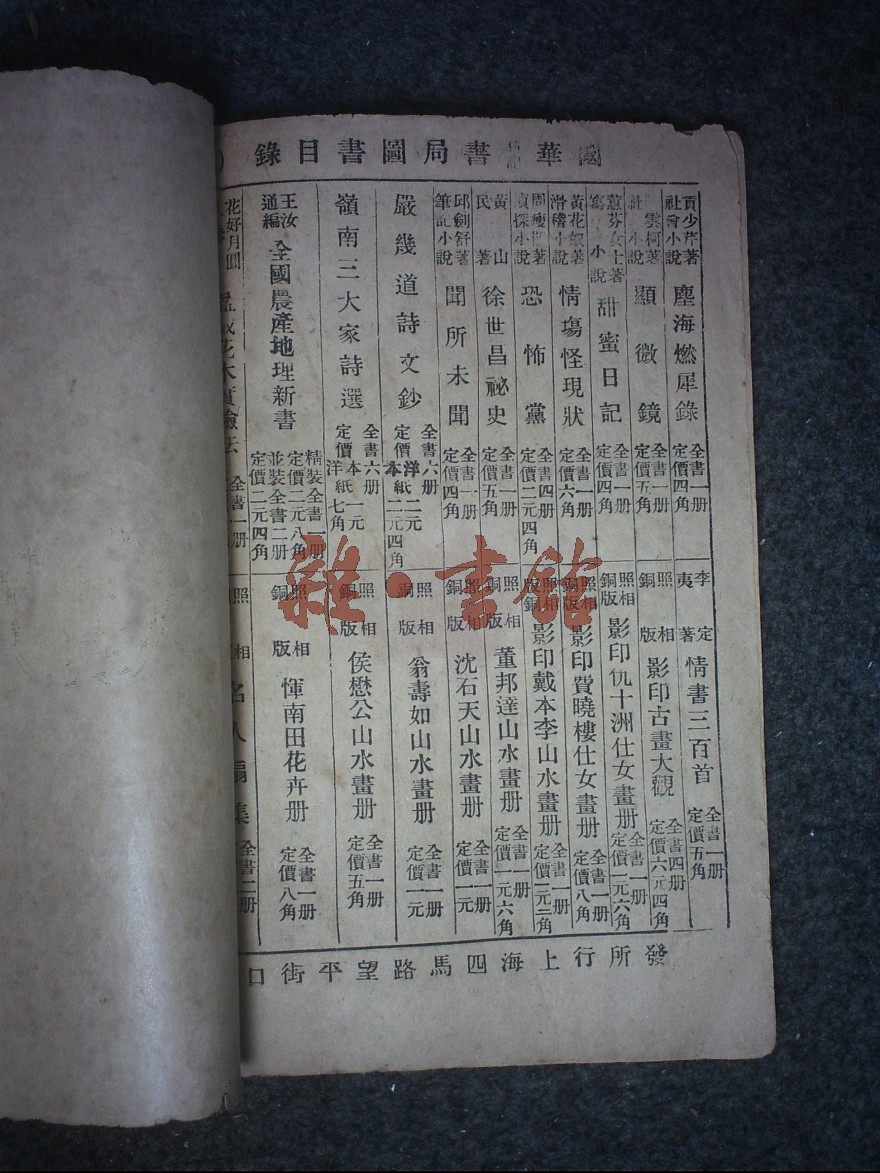 國華書局圖書目錄
貢少芹著 社會小說 塵海燃犀錄 全書一册 定價四角
雲柯著 小說 顯微鏡 全書一册 定價五角
蕙芬女士著 小說 甜蜜日記 全書一册 定價四角
黃花奴著 滑稽小說 情塲怪現狀 全書一册 定價六角
周瘦鵑著 偵探小說 恐怖黨 全書四册 定價二元四角
黃山民著 徐世昌祕史 全書一册 定價五角
邱劍舒著 筆記小說 聞所未聞 全書一册 定價四角
嚴幾道詩文鈔 全書六册 定價 洋紙二元 本紙二元四角
嶺南三大家詩選 全書六册 定價 本紙一元 洋紙七角
王汝通編 全國農產地理新書 精裝全書一册 定價二元八角 並裝全書二册 定價二元四角
花好月圓 花木實驗法 全書一册
李定夷著 情書三百首 全書一册 定價五角
照相銅版 影印古畫大觀 全書四册 定價六元四角
照相銅版 影印仇十洲仕女畫册 全書一册 定價一元六角
照相銅版 影印費曉樓仕女畫册 全書一册 定價八角
照相銅版 影印戴本李山水畫册 全書一册 定價一元二角
照相銅版 董邦達山水畫册 全書一册 定價一元六角
照相銅版 沈石天山水畫册 全書一册 定價一元
照相銅版 翁壽如山水畫册 全書一册 定價一元
照相銅版 侯懋公山水畫册 全書一册 定價五角
照相銅版 惲南田花卉册 全書一册 定價八角
照相 名人扇集 全書二册
發行所上海四馬路望平街口
雜·書館